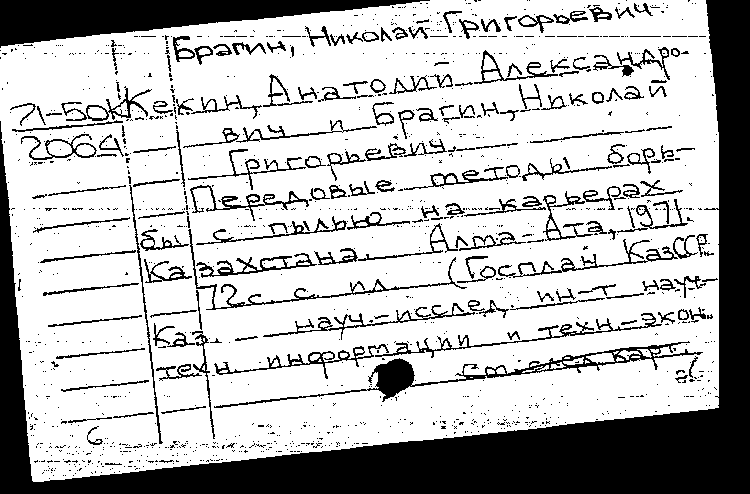 Брагин, Николай Григорьевич
71-50к Кекин, Анатолий Александро-
2064 вич и Брагин, Николай
Григорьевич.
Передовые методы борь-
бы с пылью на карьерах
Казахстана. Алма-Ата, 1971.
72 с. с ил. (Госплан КазССР.
Каз. науч.-исслед. ин-т науч-
техн. информации и техн.-экон.
См. след. карт.
6